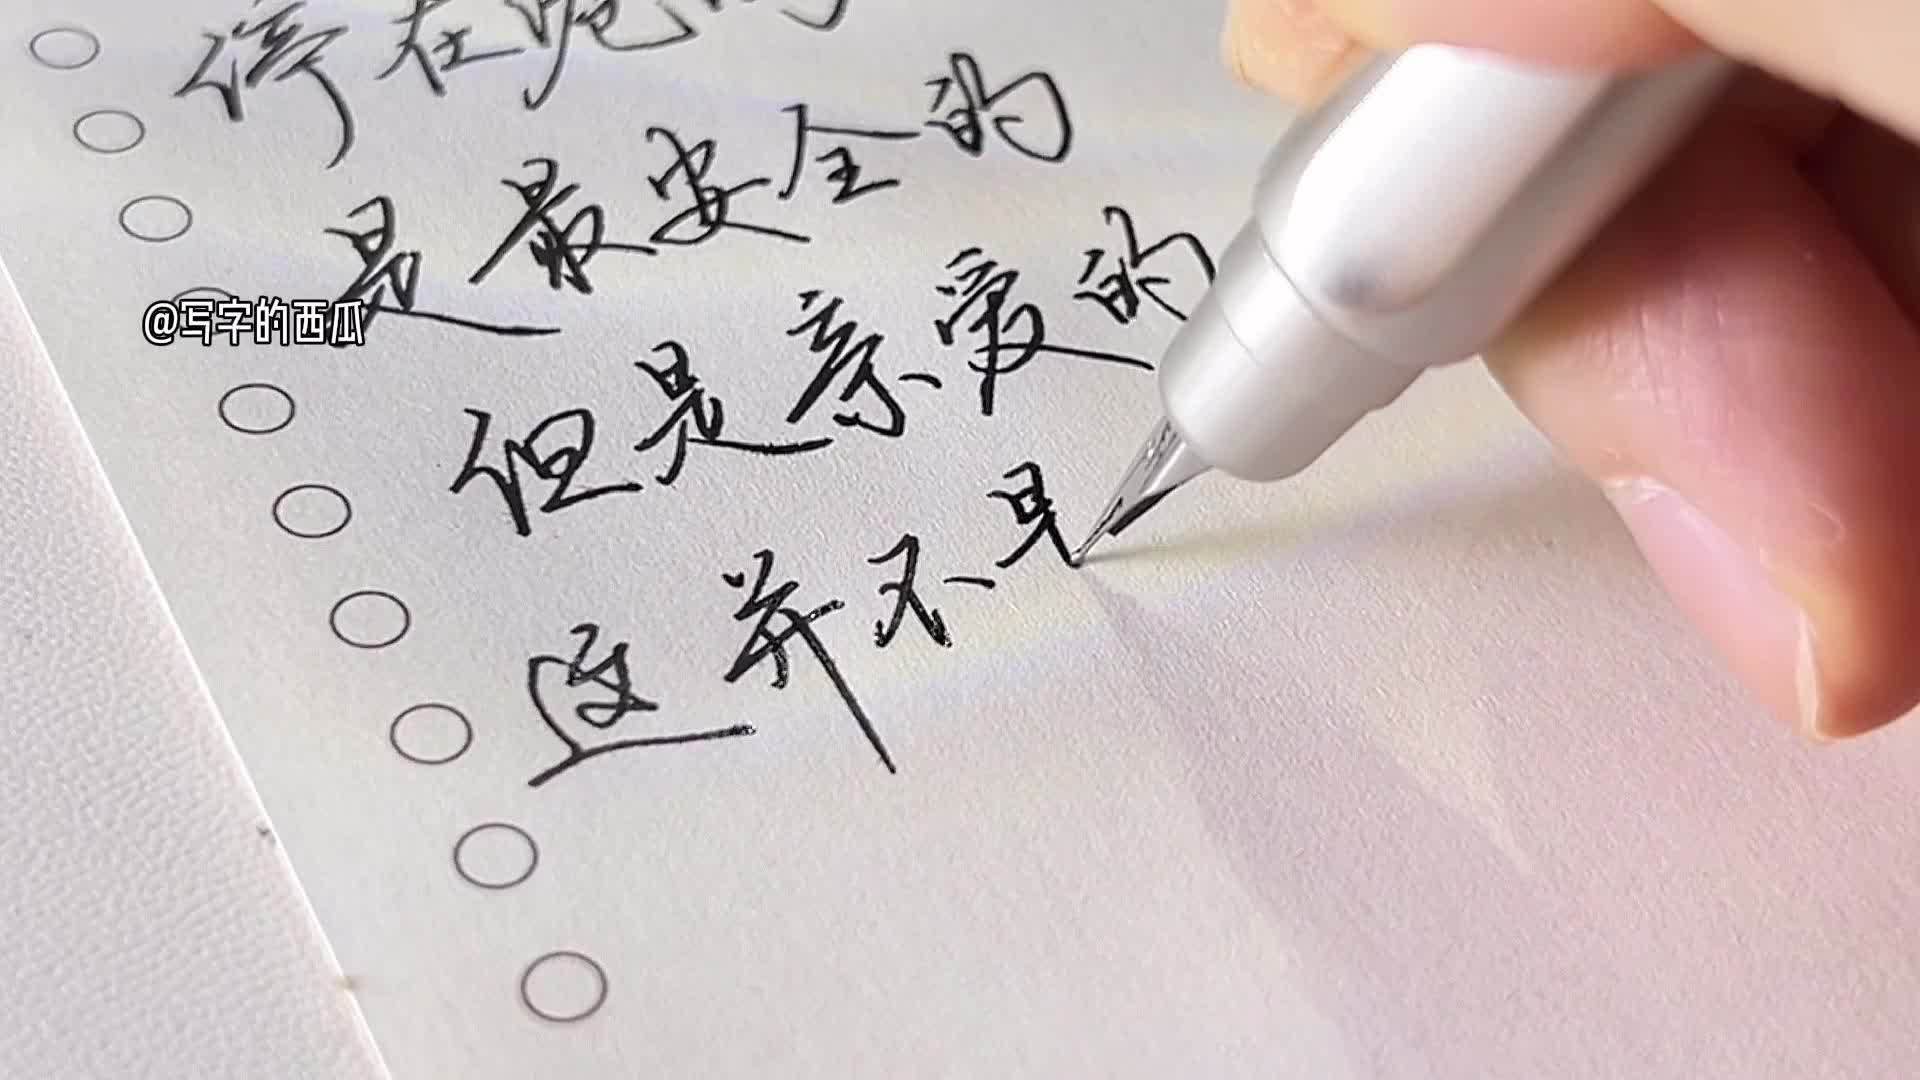 停在
是最安全的
@写字的西瓜
但是亲爱的
这并不是